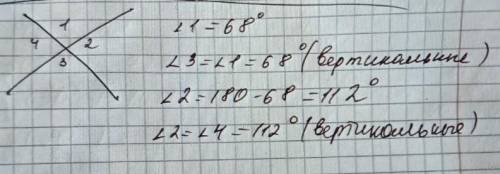 1
4 2
3
∠1=68°
∠3=∠1=68°(вертикальные)
∠2=180-68=112°
∠2=∠4=112°(вертикальные)